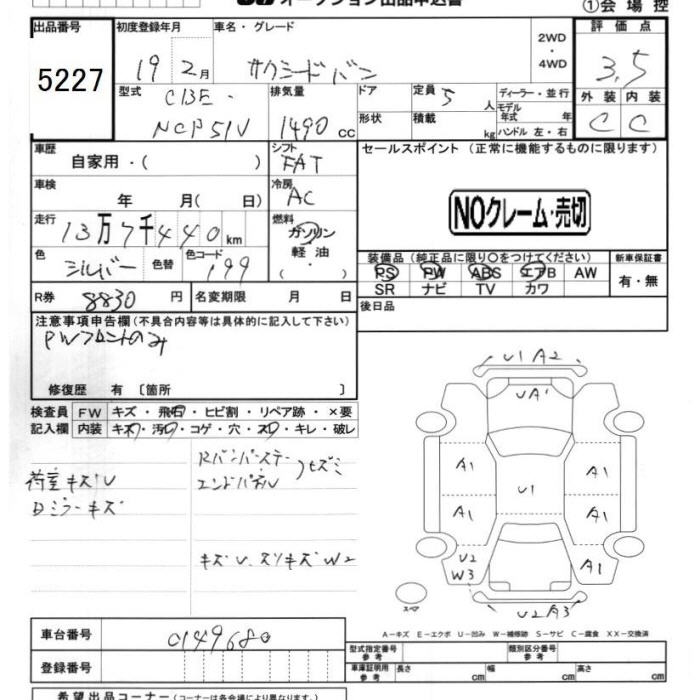 オークション出品申込書
①会場控
出品番号 初度登録年月 車名・グレード 評価点
5227 19 2月 サクシードバン 2WD・4WD 3.5
型式 CBE- 排気量 ドア 定員 5人 ディーラー・並行 外装 内装
モデル年式 年
NCP51V 1490cc 形状 積載 kg ハンドル 左・右 C C
車歴 自家用・( ) シフト FAT セールスポイント(正常に機能するものに限ります)
車検 年 月( 日) 冷房 AC
NOクレーム・売切
走行 13万7千440km 燃料 ガソリン 軽油・
装備品(純正品に限り○をつけてください) 新車保証書
色 シルバー 色替 色コード 199 PS PW ABS エアB AW 有・無
SR ナビ TV カワ
R券 8830円 名変期限 月 日 後日品
注意事項申告欄(不具合内容等は具体的に記入して下さい)
PWフロントのみ
修復歴 有〔箇所 〕
検査員 FW キズ・飛石・ヒビ割・リペア跡・×要
記入欄 内装 キズ・汚れ・コゲ・穴・スレ・キレ・破レ
荷室キズU
Dミラーキズ
Rバンパーステー
エンドパネル
キズU、スリキズW2
U1 A2
UA1
A1 A1
U1
A1 A1
U2 W3 A1
スペア
U2A3
A−キズ E−エクボ U−凹み W−補修跡 S−サビ C−腐食 XX−交換済
車台番号 0149680
型式指定番号 参考 類別区分番号 参考
登録番号 車庫証明用 参考 長さ cm 幅 cm 高さ cm
希望出品コーナー(コーナーは各会場により異なります。)